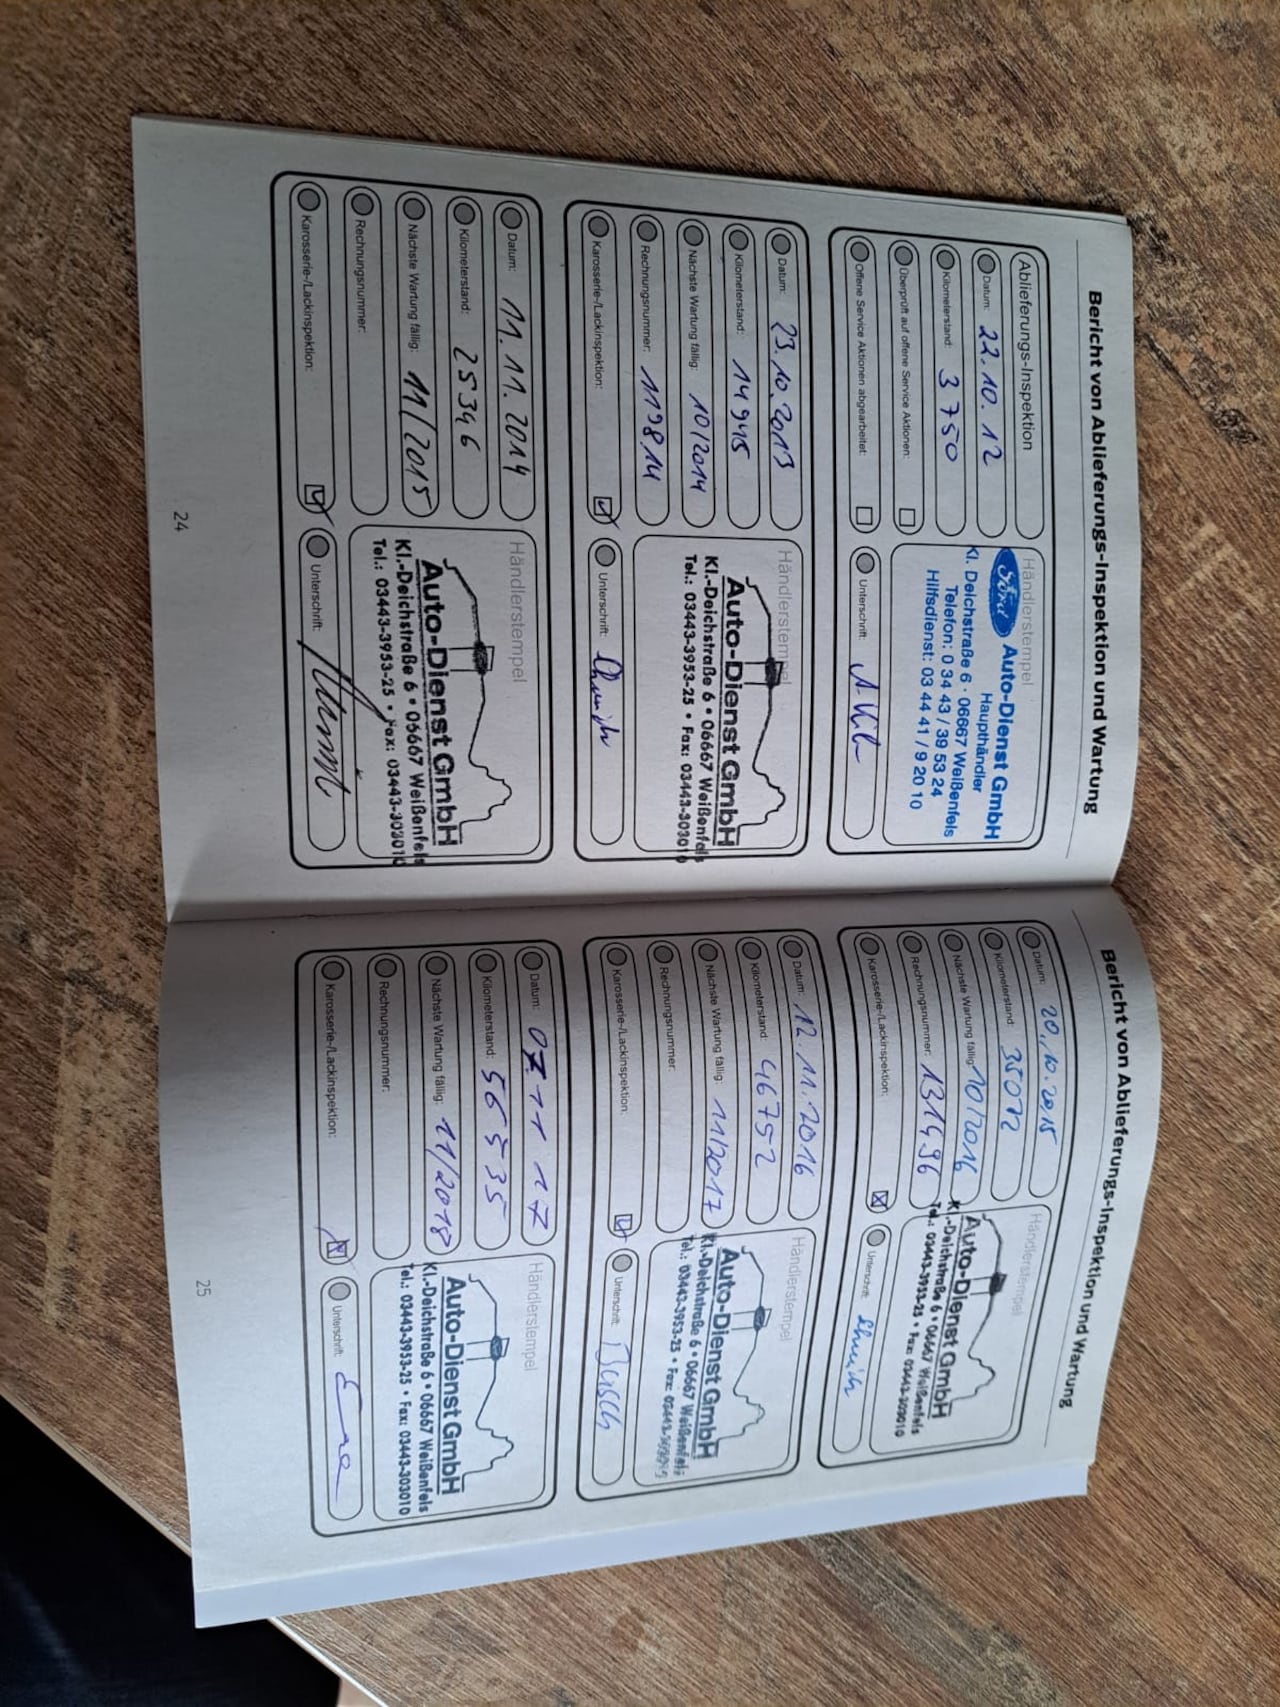 Bericht von Ablieferungs-Inspektion und Wartung
Ablieferungs-Inspektion
Datum: 22.10.12
Kilometerstand: 3750
Überprüft auf offene Service Aktionen:
Offene Service Aktionen abgearbeitet:
Händlerstempel
Ford
Auto-Dienst GmbH
Haupthändler
Kl. Deichstraße 6 · 06667 Weißenfels
Telefon: 0 34 43 / 39 53 24
Hilfsdienst: 03 44 41 / 9 20 10
Unterschrift:
Datum: 23.10.2013
Kilometerstand: 14945
Nächste Wartung fällig: 10/2014
Rechnungsnummer: 119814
Karosserie-/Lackinspektion:
Händlerstempel
Auto-Dienst GmbH
Kl.-Deichstraße 6 • 06667 Weißenfels
Tel.: 03443-3953-25 • Fax: 03443-303010
Unterschrift:
Datum: 11.11.2014
Kilometerstand: 25346
Nächste Wartung fällig: 11/2015
Rechnungsnummer:
Karosserie-/Lackinspektion:
Händlerstempel
Auto-Dienst GmbH
Kl.-Deichstraße 6 • 06667 Weißenfels
Tel.: 03443-3953-25 • Fax: 03443-303010
Unterschrift:
24
Bericht von Ablieferungs-Inspektion und Wartung
Datum: 20.10.2015
Kilometerstand: 35072
Nächste Wartung fällig: 10/2016
Rechnungsnummer: 131496
Karosserie-/Lackinspektion:
Händlerstempel
Auto-Dienst GmbH
Kl.-Deichstraße 6 • 06667 Weißenfels
Tel.: 03443-3953-25 • Fax: 03443-303010
Unterschrift:
Datum: 12.11.2016
Kilometerstand: 46752
Nächste Wartung fällig: 11/2017
Rechnungsnummer:
Karosserie-/Lackinspektion:
Händlerstempel
Auto-Dienst GmbH
Kl.-Deichstraße 6 • 06667 Weißenfels
Tel.: 03443-3953-25 • Fax: 03443-303010
Unterschrift: Busch
Datum: 07 11 17
Kilometerstand: 56535
Nächste Wartung fällig: 11/2018
Rechnungsnummer:
Karosserie-/Lackinspektion:
Händlerstempel
Auto-Dienst GmbH
Kl.-Deichstraße 6 • 06667 Weißenfels
Tel.: 03443-3953-25 • Fax: 03443-303010
Unterschrift:
25